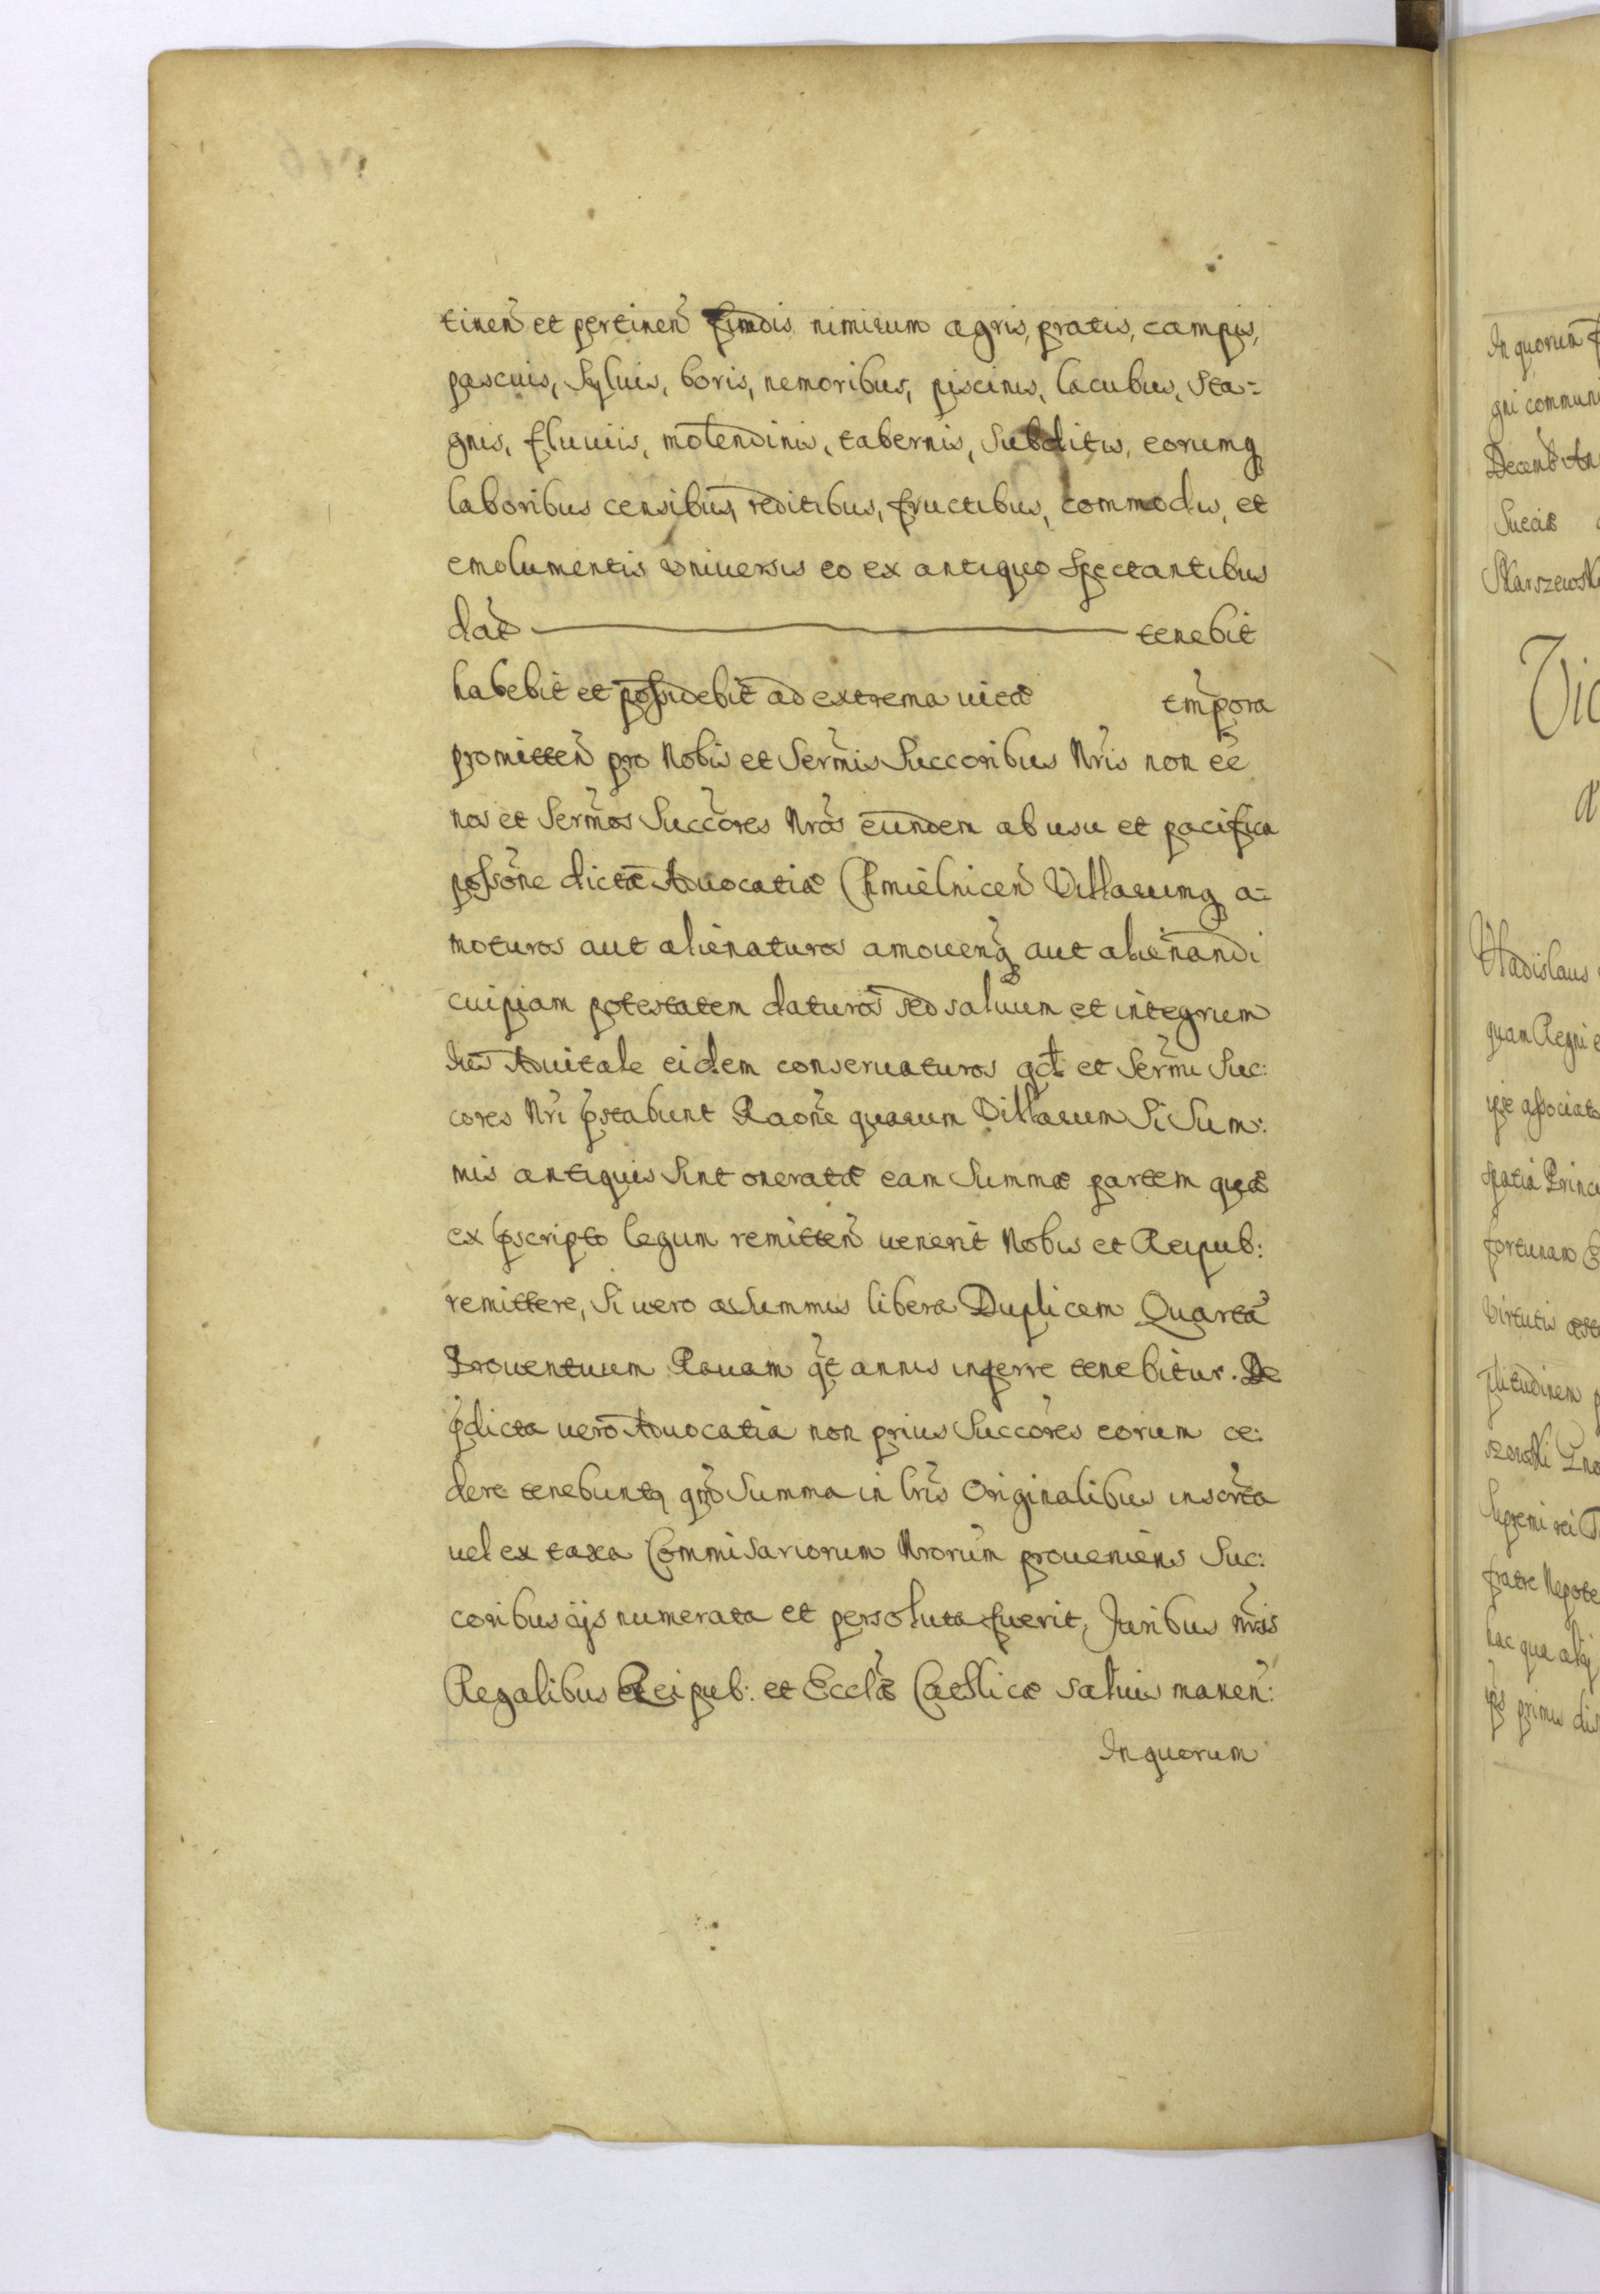 tinen et pertinen fundis nimirum agris, pratis, campis,
pascuis, Syluis, boris, nemoribus, piscinis, lacubus, Sta=
gnis, fluuiis, molendinis, tabernis, Subditis, eorumq
laboribus censibus, reditibus, fructibus, commodis, et
emolumentis vniuersis eo ex antiquo Spectantibus
dat tenebit
habebit et possidebit ad extrema uitæ tmpora
promitten pro Nobis et Sermis Succoribus Nris non ee
nos et Sermos Succores Nros eundem ab usu et pacifica
possone dictæ Aduocatiæ Chmielnicen Villarumq a=
moturos aut alienaturos amouenq aut alienandi
cuipiam potestatem daturos sed saluum et integrum
Ius Auitale eidem conseruaturos qd et Sermi Suc:
cores Nri pstabunt Raone quarum Villarum Si Sum:
mis antiquis Sint oneratæ eam Summæ partem quæ
ex pscripto legum remitten uenerit Nobis et Reipub:
remittere, Si uero a Summis libera Duplicem Quarta
Prouentuum Rauam qt annis inferre tenebitur. De
pdicta uero Aduocatia non prius Succores eorum ce:
dere tenebuntq qmo Summa in lris Originalibus inscrta
uel ex taxa Commisariorum Nrorum proueniens Suc:
coribus ijs numerata et persoluta fuerit, Iuribus nris
Regalibus Reipub: et Ecclæ Catlicæ saluis manen:
In quorum
In quorum
gni commun
Decemb An
Sueciæ
Skarszewsk
Vladislaus
quam Regni
spatia Princ
fortunam
Virtutis
plitudinem
Supremi rei
fratre Nepote
hac qua
primis